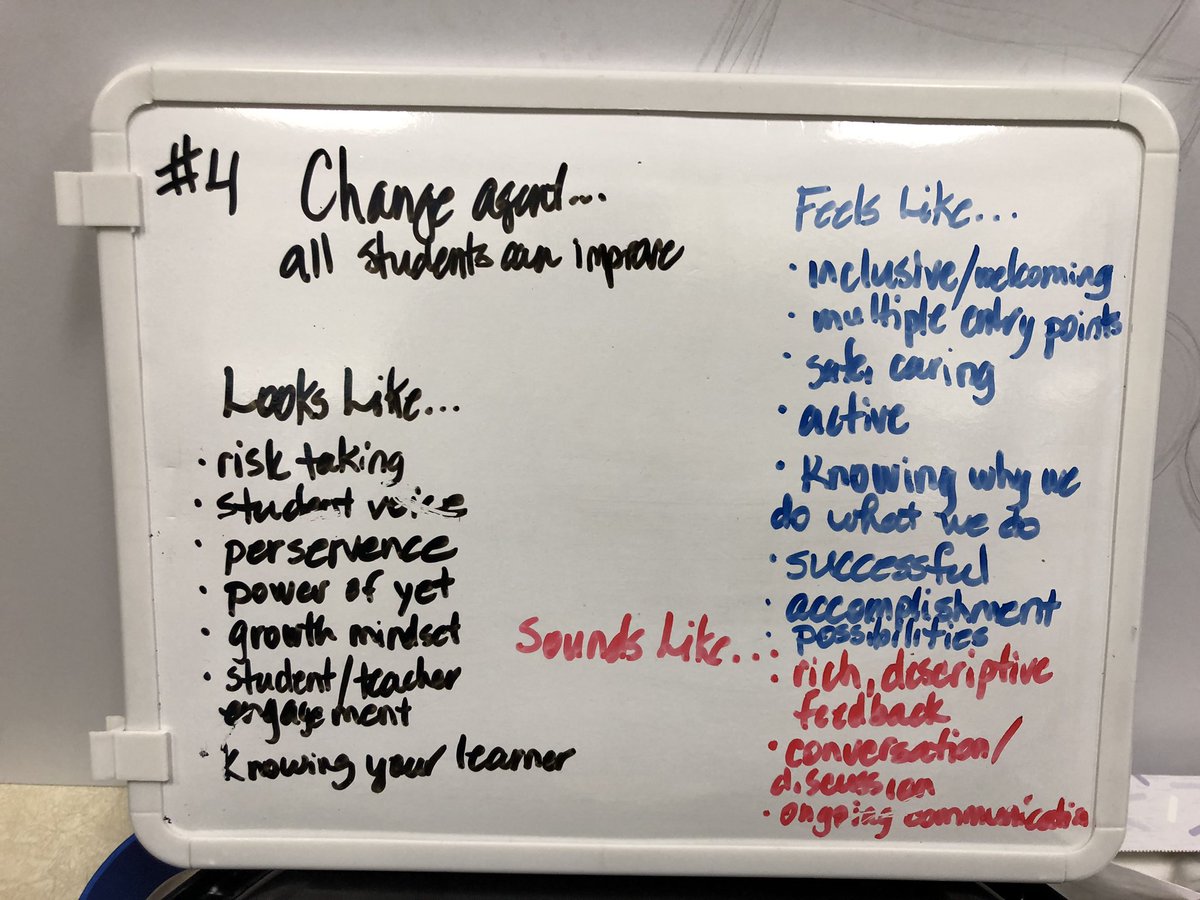 #4 Change agent...
all students can improve
Looks Like...
· risk taking
· student voice
· perservence
· power of yet
· growth mindset
· student/teacher
engagement
· Knowing your learner
Feels Like...
· inclusive/welcoming
· multiple entry points
· safe, caring
· active
· Knowing why we
do what we do
· successful
· accomplishment
· possibilities
Sounds Like...
· rich, descriptive
feedback
· conversation/
discussion
· ongoing communication